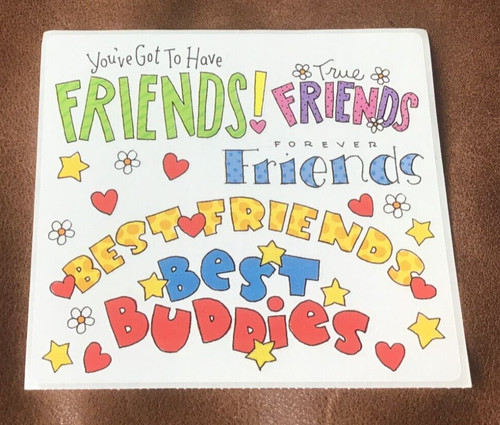 You've Got To Have
FRIENDS!
True
FRIENDS
FOREVER
Friends
BEST FRIENDS
BEST
BUDDIES